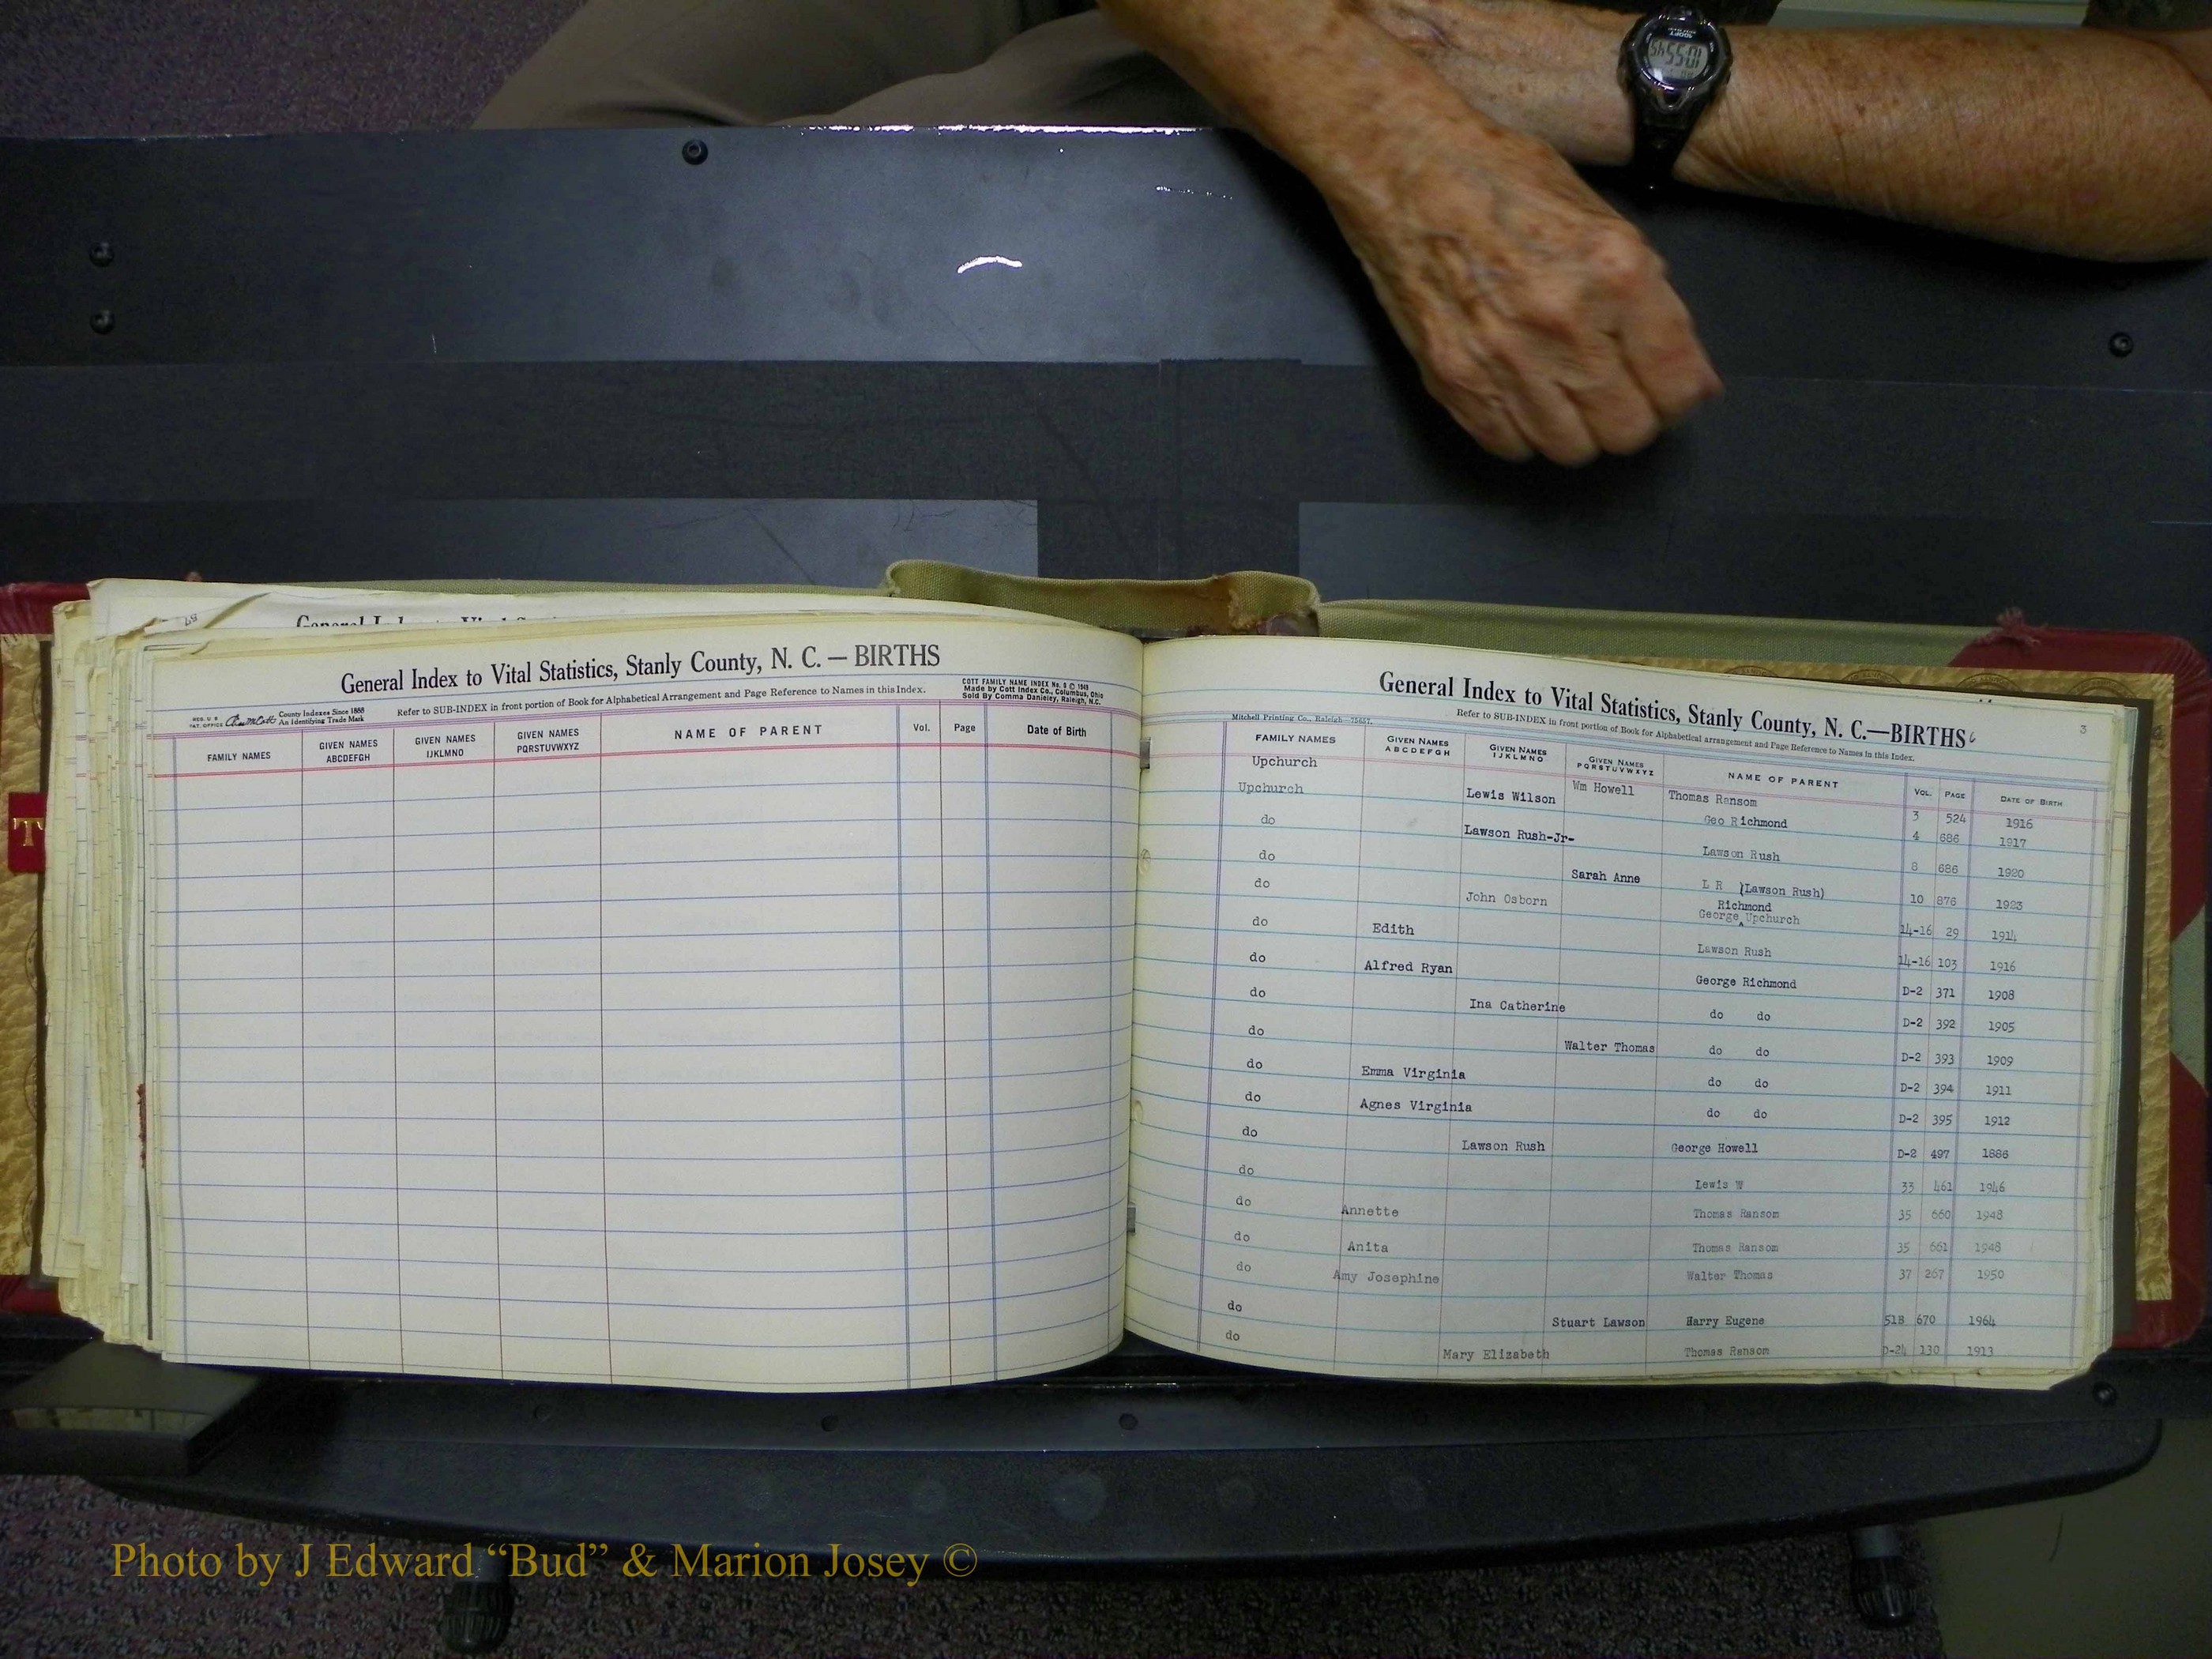 General Index to Vital Statistics, Stanly County, N. C. — BIRTHS
COTT FAMILY NAME INDEX No. 5 © 1949
Made by Cott Index Co., Columbus, Ohio
Sold By Comma Danieley, Raleigh, N.C.
REG. U S PAT. OFFICE County Indexes Since 1888 An Identifying Trade Mark
Refer to SUB-INDEX in front portion of Book for Alphabetical Arrangement and Page Reference to Names in this Index.
FAMILY NAMES GIVEN NAMES ABCDEFGH GIVEN NAMES IJKLMNO GIVEN NAMES PQRSTUVWXYZ NAME OF PARENT Vol. Page Date of Birth
General Index to Vital Statistics, Stanly County, N. C.—BIRTHS
3
Mitchell Printing Co., Raleigh—75657.
Refer to SUB-INDEX in front portion of Book for Alphabetical arrangement and Page Reference to Names in this Index.
FAMILY NAMES GIVEN NAMES ABCDEFGH GIVEN NAMES IJKLMNO GIVEN NAMES PQRSTUVWXYZ NAME OF PARENT VOL. PAGE DATE OF BIRTH
Upchurch Wm Howell Thomas Ransom 3 524 1916
Upchurch Lewis Wilson Geo Richmond 4 686 1917
do Lawson Rush-Jr- Lawson Rush 8 686 1920
do Sarah Anne L R (Lawson Rush) 10 876 1923
do John Osborn George Richmond Upchurch 14-16 29 1914
do Edith Lawson Rush 14-16 103 1916
do Alfred Ryan George Richmond D-2 371 1908
do Ina Catherine do do D-2 392 1905
do Walter Thomas do do D-2 393 1909
do Emma Virginia do do D-2 394 1911
do Agnes Virginia do do D-2 395 1912
do Lawson Rush George Howell D-2 497 1886
do Lewis W 33 461 1946
do Annette Thomas Ransom 35 660 1948
do Anita Thomas Ransom 35 661 1948
do Amy Josephine Walter Thomas 37 267 1950
do Stuart Lawson Harry Eugene 51B 670 1964
do Mary Elizabeth Thomas Ransom D-24 130 1913
Photo by J Edward “Bud” & Marion Josey ©